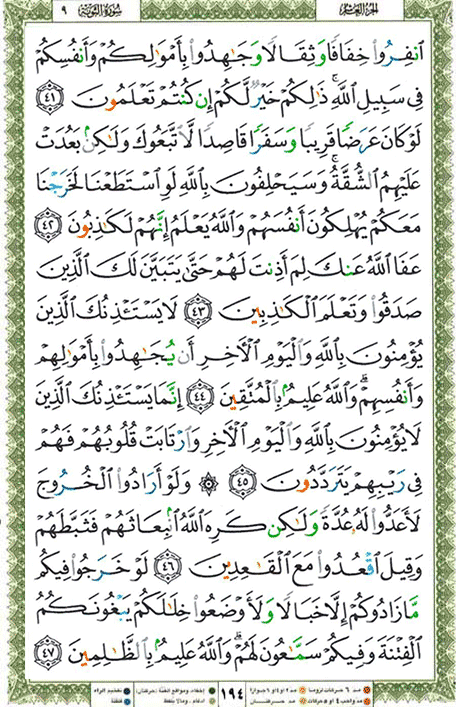 سُورَةُ التَّوْبَةِ ٩
الجُزءُ العَاشِرُ
ٱنفِرُوا۟ خِفَافًا وَثِقَالًا وَجَٰهِدُوا۟ بِأَمْوَٰلِكُمْ وَأَنفُسِكُمْ
فِى سَبِيلِ ٱللَّهِ ۚ ذَٰلِكُمْ خَيْرٌ لَّكُمْ إِن كُنتُمْ تَعْلَمُونَ ٤١
لَوْ كَانَ عَرَضًا قَرِيبًا وَسَفَرًا قَاصِدًا لَّٱتَّبَعُوكَ وَلَٰكِنۢ بَعُدَتْ
عَلَيْهِمُ ٱلشُّقَّةُ ۚ وَسَيَحْلِفُونَ بِٱللَّهِ لَوِ ٱسْتَطَعْنَا لَخَرَجْنَا
مَعَكُمْ يُهْلِكُونَ أَنفُسَهُمْ وَٱللَّهُ يَعْلَمُ إِنَّهُمْ لَكَٰذِبُونَ ٤٢
عَفَا ٱللَّهُ عَنكَ لِمَ أَذِنتَ لَهُمْ حَتَّىٰ يَتَبَيَّنَ لَكَ ٱلَّذِينَ
صَدَقُوا۟ وَتَعْلَمَ ٱلْكَٰذِبِينَ ٤٣ لَا يَسْتَـْٔذِنُكَ ٱلَّذِينَ
يُؤْمِنُونَ بِٱللَّهِ وَٱلْيَوْمِ ٱلْـَٔاخِرِ أَن يُجَٰهِدُوا۟ بِأَمْوَٰلِهِمْ
وَأَنفُسِهِمْ ۗ وَٱللَّهُ عَلِيمٌۢ بِٱلْمُتَّقِينَ ٤٤ إِنَّمَا يَسْتَـْٔذِنُكَ ٱلَّذِينَ
لَا يُؤْمِنُونَ بِٱللَّهِ وَٱلْيَوْمِ ٱلْـَٔاخِرِ وَٱرْتَابَتْ قُلُوبُهُمْ فَهُمْ
فِى رَيْبِهِمْ يَتَرَدَّدُونَ ٤٥ ۞ وَلَوْ أَرَادُوا۟ ٱلْخُرُوجَ
لَأَعَدُّوا۟ لَهُۥ عُدَّةً وَلَٰكِن كَرِهَ ٱللَّهُ ٱنۢبِعَاثَهُمْ فَثَبَّطَهُمْ
وَقِيلَ ٱقْعُدُوا۟ مَعَ ٱلْقَٰعِدِينَ ٤٦ لَوْ خَرَجُوا۟ فِيكُم
مَّا زَادُوكُمْ إِلَّا خَبَالًا وَلَأَوْضَعُوا۟ خِلَٰلَكُمْ يَبْغُونَكُمُ
ٱلْفِتْنَةَ وَفِيكُمْ سَمَّٰعُونَ لَهُمْ ۗ وَٱللَّهُ عَلِيمٌۢ بِٱلظَّٰلِمِينَ ٤٧
١٩٤